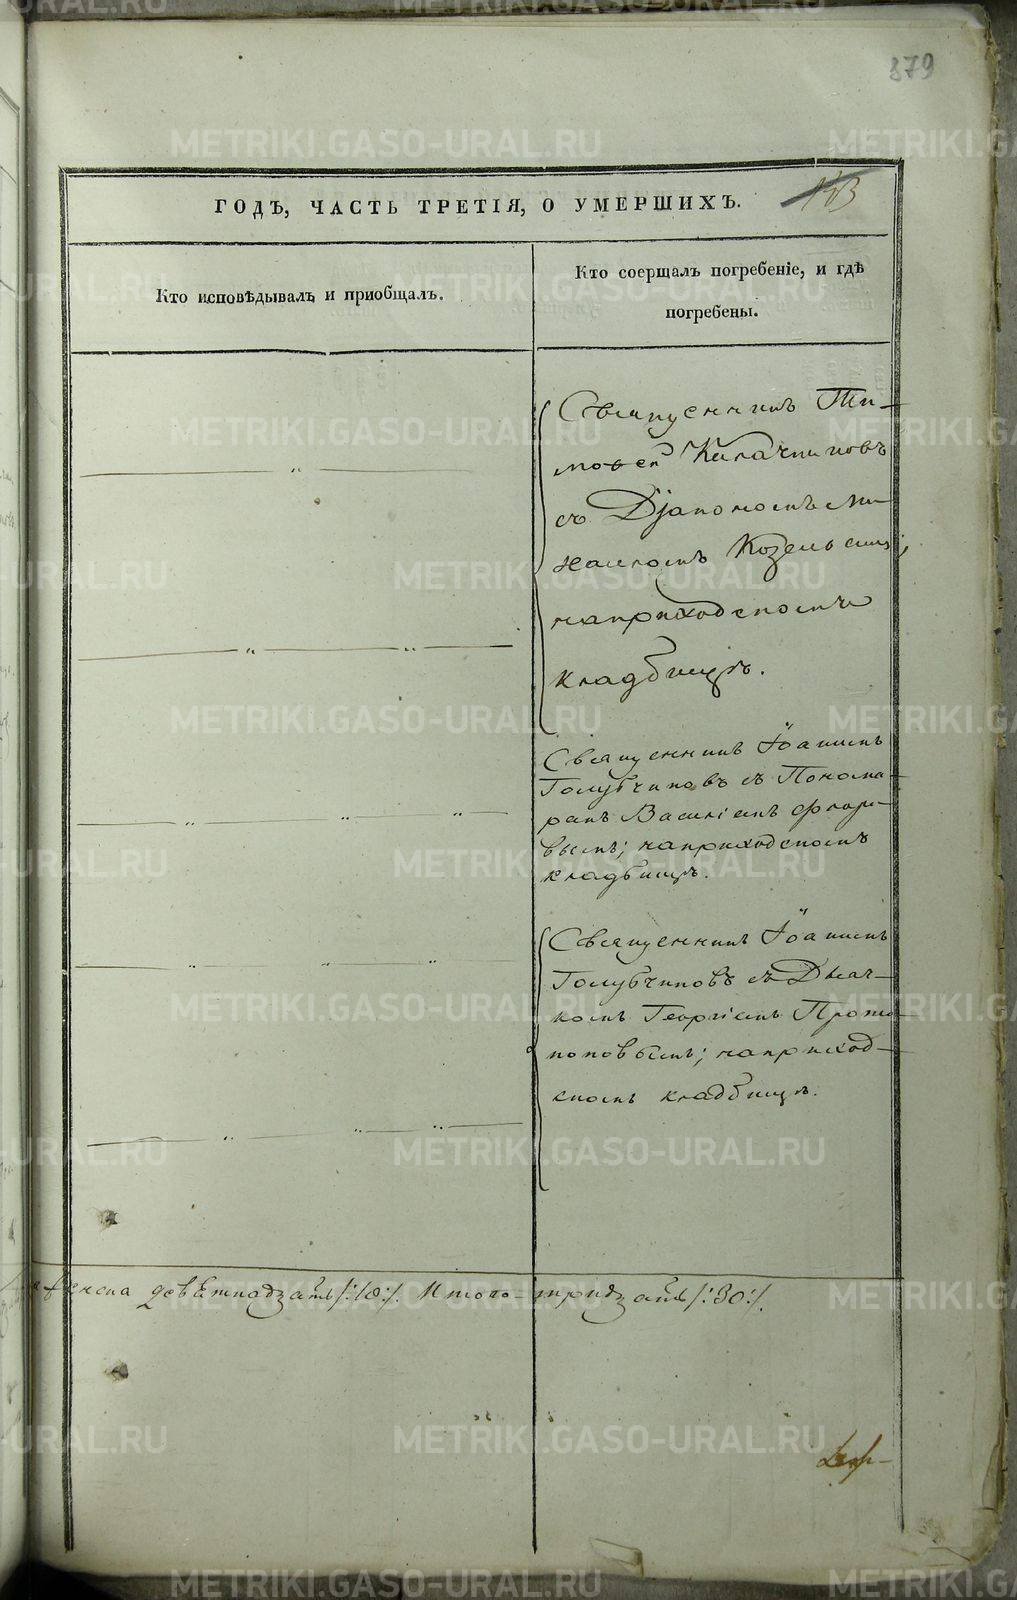 379
ГОДЪ, ЧАСТЬ ТРЕТІЯ, О УМЕРШИХЪ.
Кто исповѣдывалъ и приобщалъ.
Кто соерщалъ погребеніе, и гдѣ
погребены.
Священникъ Ти-
моѳей Калачниковъ
съ Діакономъ Ми-
хаиломъ Козельскимъ;
на приходскомъ
кладбищѣ.
Священникъ Іоаннъ
Голубчиковъ съ Понома-
ремъ Василіемъ Флоро-
вымъ; на приходскомъ
кладбищѣ.
Священникъ Іоаннъ
Голубчиковъ съ Дьяч-
комъ Георгіемъ Прото-
поповымъ; на приход-
скомъ кладбищѣ.
женска Итого - тридцать /:30:/.
METRIKI.GASO-URAL.RU